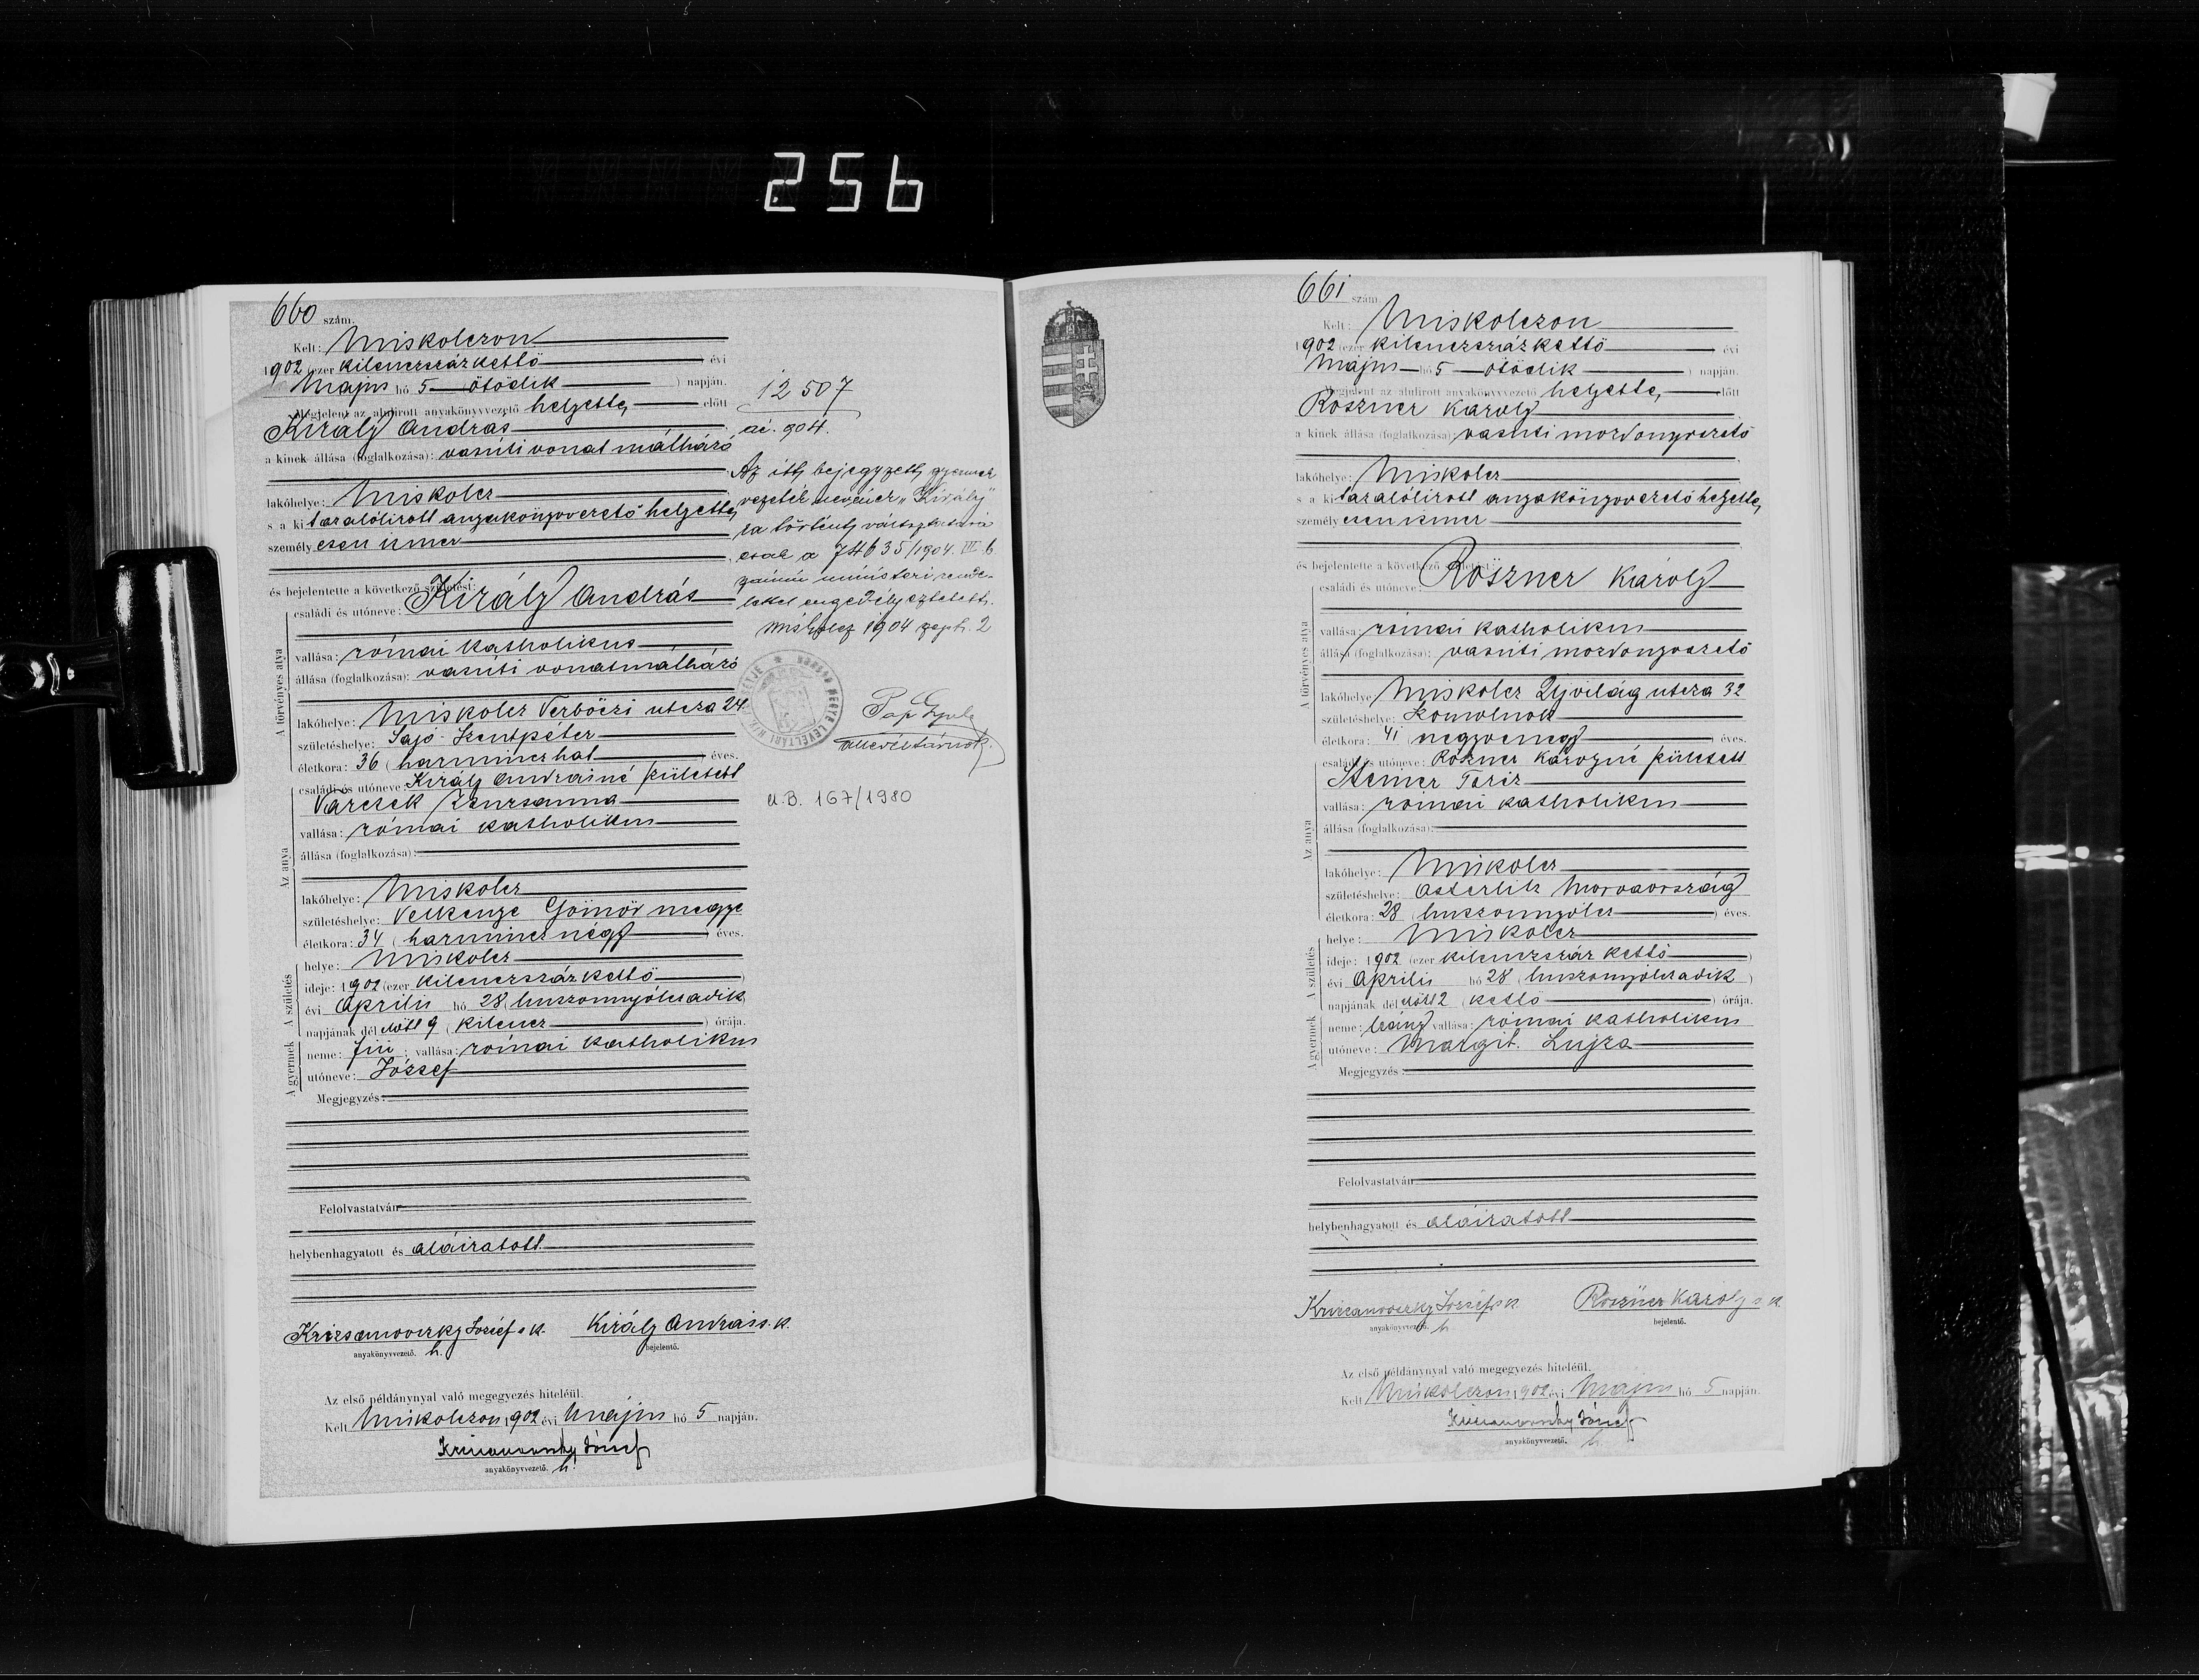 256
660 szám.
Kelt: Miskolczon
1902 (ezer kilenczszázkettö évi
Május hó 5 ötödik ) napján.
Megjelent az alulirott anyakönyvvezető helyettes előtt
Király András
a kinek állása (foglalkozása): vasúti vonat málházó
lakóhelye: Miskolcz
s a kit az alólirott anyakönyvvezető helyettes
személyesen ismer
és bejelentette a következő születést:
A törvényes atya
családi és utóneve: Király András
vallása: római katholikus
állása (foglalkozása): vasúti vonatmálházó
lakóhelye: Miskolcz Verböczi utcza 24.
születéshelye: Sajó-Szentpéter
életkora: 36 (harminczhat ) éves.
Az anya
családi és utóneve: Király Andrásné született
Varcsek Zsuzsanna
vallása: római katholikus
állása (foglalkozása):
lakóhelye: Miskolcz
születéshelye: Velkenye Gömör megye
életkora: 34 (harmincznégy ) éves.
A születés
helye: Miskolcz
ideje: 1902 (ezer kilenczszázkettö )
évi Április hó 28 (huszonnyólczadik)
napjának délelőtt 9 (kilencz ) órája.
A gyermek
neme: fiú; vallása: római katholikus
utóneve: József
Megjegyzés:
Felolvastatván
helybenhagyatott és aláiratott
Krizsanovszky József s k. Király András s. k.
anyakönyvvezető. h. bejelentő.
Az első példánynyal való megegyezés hiteléül.
Kelt Miskolczon 1902 évi Május hó 5 napján.
Krizsanovszky József
anyakönyvvezető. h.
12507
ai. 904.
Az itt bejegyzett gyermek
vezeték nevének "Király"
ra történt változtatása
csak a 74635/1904. III. b
számú ministeri rende-
lettel engedélyeztetett.
Miskolcz 1904 szept. 2
Pap Gyula
allevéltárnok.
BORSOD MEGYE LEVÉLTÁRI
A.B. 167/1980
661 szám.
Kelt: Miskolczon
1902 (ezer kilenczszázkettö évi
Május hó 5 ötödik ) napján.
Megjelent az alulirott anyakönyvvezető helyettes előtt
Röszner Károly
a kinek állása (foglalkozása): vasúti mozdonyvezető
lakóhelye: Miskolcz
s a kit az alólirott anyakönyvvezető helyettes
személyesen ismer
és bejelentette a következő születést:
A törvényes atya
családi és utóneve: Röszner Károly
vallása: római katholikus
állása (foglalkozása): vasúti mozdonyvezető
lakóhelye: Miskolcz Ujvilág utcza 32
születéshelye: Szomolnok
életkora: 41 (negyvenegy ) éves.
Az anya
családi és utóneve: Röszner Károlyné született
Steiner Teréz
vallása: római katholikus
állása (foglalkozása):
lakóhelye: Miskolcz
születéshelye: Osterlitz Morvaország
életkora: 28 (huszonnyólcz ) éves.
A születés
helye: Miskolcz
ideje: 1902 (ezer kilenczszáz kettö )
évi Április hó 28 (huszonnyólczadik )
napjának délelőtt 2 (kettö ) órája.
A gyermek
neme: leány vallása: római katholikus
utóneve: Margit. Lujza
Megjegyzés:
Felolvastatván
helybenhagyatott és aláiratott
Krizsanovszky József s k Röszner Károly s. k.
anyakönyvvezető. h. bejelentő.
Az első példánynyal való megegyezés hiteléül.
Kelt Miskolczon 1902 évi Május hó 5 napján.
Krizsanovszky József
anyakönyvvezető. h.